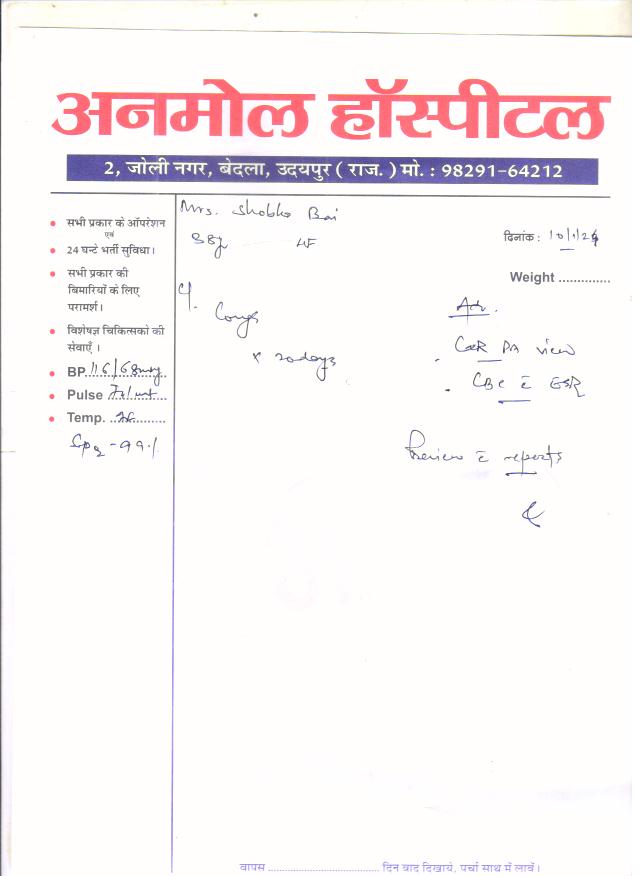 अनमोल हॉस्पीटल
2, जोली नगर, बेदला, उदयपुर ( राज. ) मो. : 98291-64212
Mrs. Shobha Bai
दिनांक : 10/1/24
Weight ..............
• सभी प्रकार के ऑपरेशन
एवं
• 24 घन्टे भर्ती सुविधा।
• सभी प्रकार की
बिमारियों के लिए
परामर्श।
• विशेषज्ञ चिकित्सको की
सेवाएँ ।
• BP 116/68
• Pulse
• Temp.
Spo2 - 99%
c/o
Cough
x 20 days
Adv.
. CXR PA view
. CBC c̄ ESR
Review c̄ reports
वापस ........................................ दिन बाद दिखाये, पर्चा साथ में लावें।